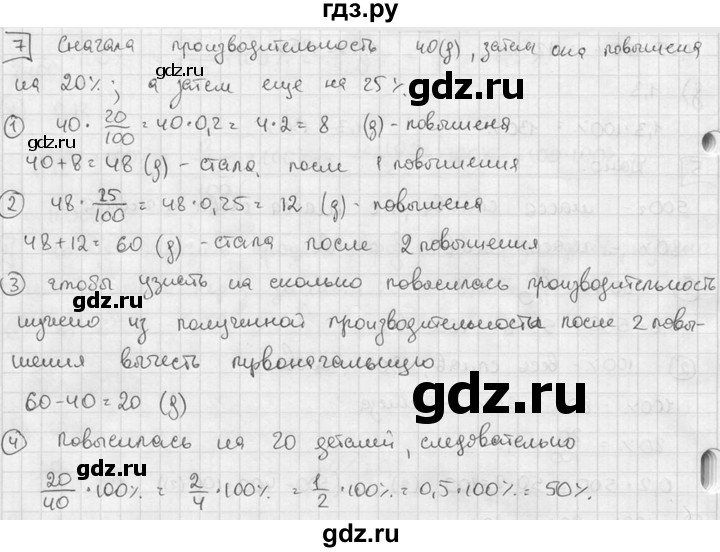 гдз.ру
7 Сначала производительность 40(g), затем она повышена
на 20%; а затем еще на 25%.
gdz.ru gdz.ru
① 40 · 20/100 = 40·0,2 = 4·2 = 8 (g) - повышеня
40+8=48 (g) - стала после 1 повышения
gdz.ru
② 48 · 25/100 = 48·0,25 = 12 (g) - повышеня
gdz.ru
48+12=60 (g) - стала после 2 повышения
③ чтобы узнать на сколько повысилась производительность
gdz.ru gdz.ru
нужно из полученной производительность после 2 повы-
шения вычесть первоначальную
gdz.ru
60-40=20 (g)
gdz.ru
④ повысилась на 20 деталей, следовательно
gdz.ru
20/40 · 100% = 2/4 · 100% = 1/2 · 100% = 0,5 · 100% = 50%.
gdz.ru
gdz.ru